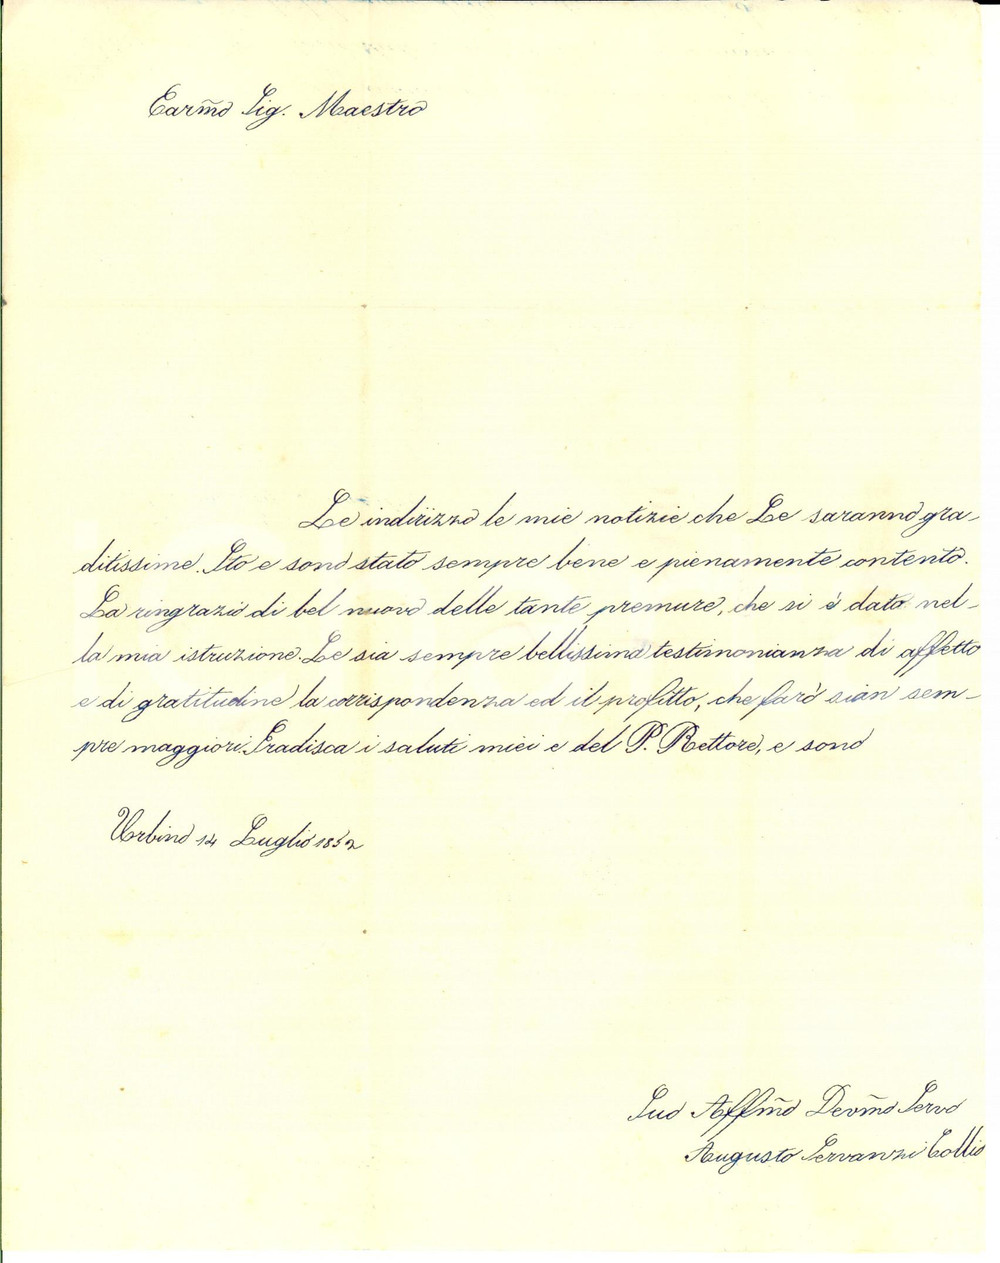 Carm̃o Sig. Maestro
Le indirizzo le mie notizie che Le saranno gra-
ditissime. Sto e sono stato sempre bene e pienamente contento.
La ringrazio di bel nuovo delle tante premure, che si è dato nel-
la mia istruzione. Le sia sempre bellissima testimonianza di affetto
e di gratitudine la corrispondenza ed il profitto, che farò sian sem-
pre maggiori. Gradisca i saluti miei e del P. Rettore, e sono
Urbino 14 Luglio 1852
Suo Affm̃o Devm̃o Servo
Augusto Servanzi Collio